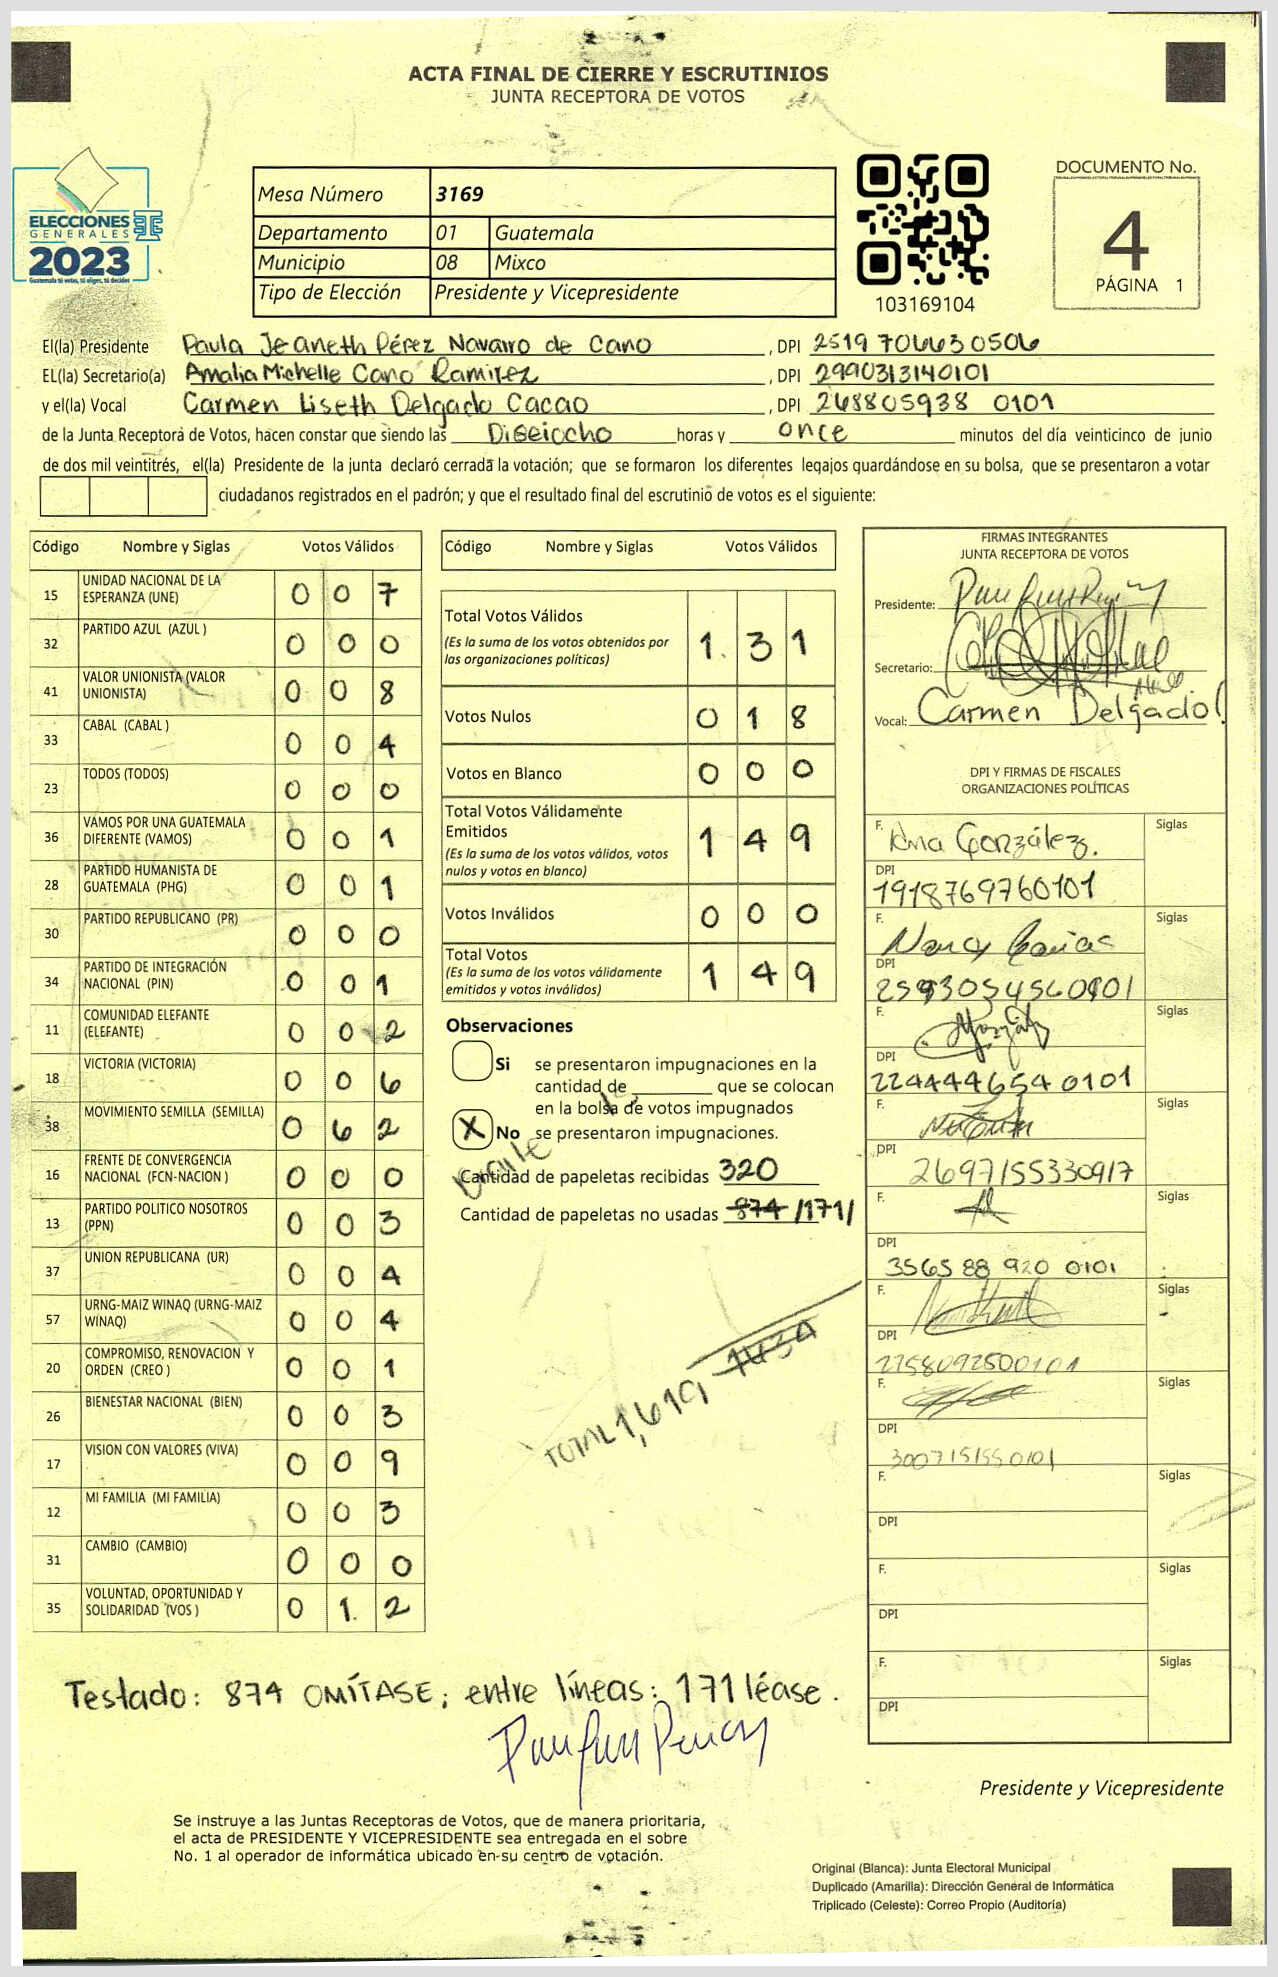 ACTA FINAL DE CIERRE Y ESCRUTINIOS
JUNTA RECEPTORA DE VOTOS
ELECCIONES
GENERALES
2023
Mesa Número 3169
Departamento 01 Guatemala
Municipio 08 Mixco
Tipo de Elección Presidente y Vicepresidente
103169104
DOCUMENTO No.
4
PÁGINA 1
El(la) Presidente Paula Jeaneth Pérez Navarro de Cano, DPI 2519 706630506
EL(la) Secretario(a) Amalia Michelle Cano Ramirez, DPI 2990313140101
y el(la) Vocal Carmen Liseth Delgado Cacao, DPI 268805938 0101
de la Junta Receptora de Votos, hacen constar que siendo las Diseiocho horas y once minutos del día veinticinco de junio
de dos mil veintitrés, el(la) Presidente de la junta declaró cerrada la votación; que se formaron los diferentes legajos guardándose en su bolsa, que se presentaron a votar
ciudadanos registrados en el padrón; y que el resultado final del escrutinio de votos es el siguiente:
Código Nombre y Siglas Votos Válidos
15 UNIDAD NACIONAL DE LA ESPERANZA (UNE) 0 0 7
32 PARTIDO AZUL (AZUL ) 0 0 0
41 VALOR UNIONISTA (VALOR UNIONISTA) 0 0 8
33 CABAL (CABAL ) 0 0 4
23 TODOS (TODOS) 0 0 0
36 VAMOS POR UNA GUATEMALA DIFERENTE (VAMOS) 0 0 1
28 PARTIDO HUMANISTA DE GUATEMALA (PHG) 0 0 1
30 PARTIDO REPUBLICANO (PR) 0 0 0
34 PARTIDO DE INTEGRACIÓN NACIONAL (PIN) 0 0 1
11 COMUNIDAD ELEFANTE (ELEFANTE) 0 0 2
18 VICTORIA (VICTORIA) 0 0 6
38 MOVIMIENTO SEMILLA (SEMILLA) 0 6 2
16 FRENTE DE CONVERGENCIA NACIONAL (FCN-NACION ) 0 0 0
13 PARTIDO POLITICO NOSOTROS (PPN) 0 0 3
37 UNION REPUBLICANA (UR) 0 0 4
57 URNG-MAIZ WINAQ (URNG-MAIZ WINAQ) 0 0 4
20 COMPROMISO, RENOVACION Y ORDEN (CREO ) 0 0 1
26 BIENESTAR NACIONAL (BIEN) 0 0 3
17 VISION CON VALORES (VIVA) 0 0 9
12 MI FAMILIA (MI FAMILIA) 0 0 3
31 CAMBIO (CAMBIO) 0 0 0
35 VOLUNTAD, OPORTUNIDAD Y SOLIDARIDAD (VOS ) 0 1 2
Código Nombre y Siglas Votos Válidos
Total Votos Válidos 1 3 1
(Es la suma de los votos obtenidos por
las organizaciones políticas)
Votos Nulos 0 1 8
Votos en Blanco 0 0 0
Total Votos Válidamente
Emitidos 1 4 9
(Es la suma de los votos válidos, votos
nulos y votos en blanco)
Votos Inválidos 0 0 0
Total Votos 1 4 9
(Es la suma de los votos válidamente
emitidos y votos inválidos)
Observaciones
Si se presentaron impugnaciones en la
cantidad de que se colocan
en la bolsa de votos impugnados
X No se presentaron impugnaciones.
Cantidad de papeletas recibidas 320
Cantidad de papeletas no usadas 874 /171/
TOTAL 1,619
FIRMAS INTEGRANTES
JUNTA RECEPTORA DE VOTOS
Presidente:
Secretario:
Vocal: Carmen Delgado
DPI Y FIRMAS DE FISCALES
ORGANIZACIONES POLÍTICAS
F. González. Siglas
DPI 1918769760101
F. Nancy Siglas
DPI 2593054560101
F. Siglas
DPI 2244446540101
F. Siglas
DPI 2697155330917
F. Siglas
DPI 3565 88 920 0101
F. Siglas
DPI 2258092500101
F. Siglas
DPI 3007151550101
F. Siglas
DPI
F. Siglas
DPI
F. Siglas
DPI
Testado: 874 OMÍTASE; entre líneas: 171 léase.
Presidente y Vicepresidente
Se instruye a las Juntas Receptoras de Votos, que de manera prioritaria,
el acta de PRESIDENTE Y VICEPRESIDENTE sea entregada en el sobre
No. 1 al operador de informática ubicado en su centro de votación.
Original (Blanca): Junta Electoral Municipal
Duplicado (Amarilla): Dirección General de Informática
Triplicado (Celeste): Correo Propio (Auditoría)